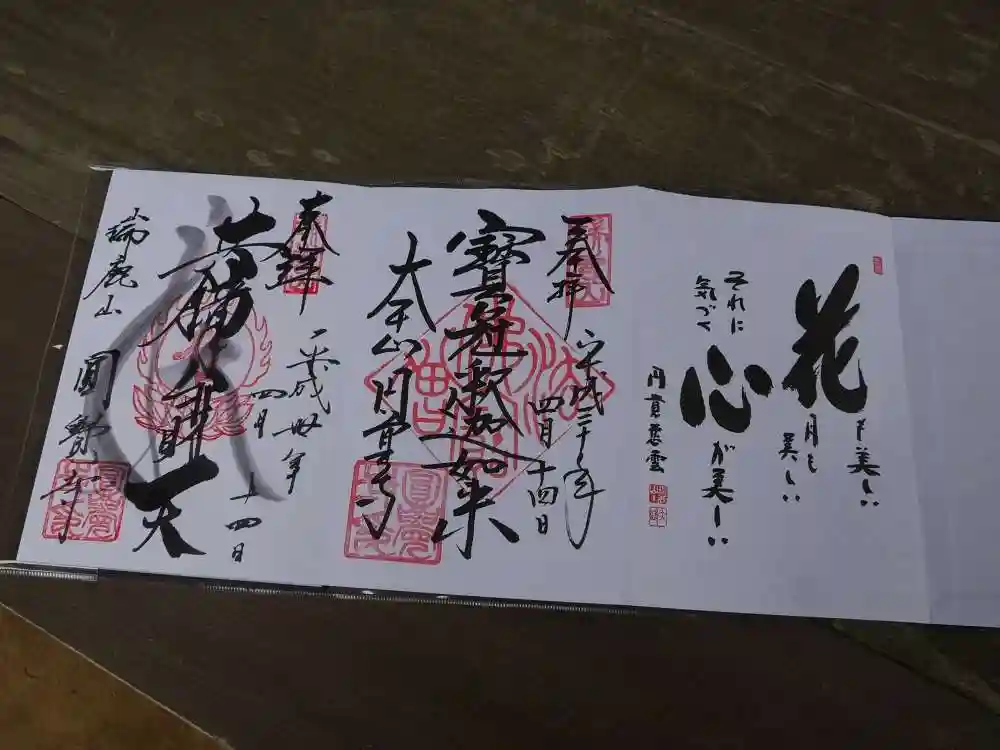 花も美しい
月も美しい
それに
気づく
心が美しい
円覚
奉拝
平成三十年
四月十四日
寶冠釈迦如来
大本山円覚寺
奉拝
平成卅年
四月
十四日
天
瑞鹿山
圓覺寺